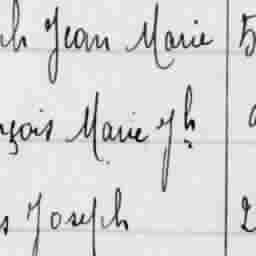 ph Jean Marie 5
nçois Marie Jh
s Joseph 2